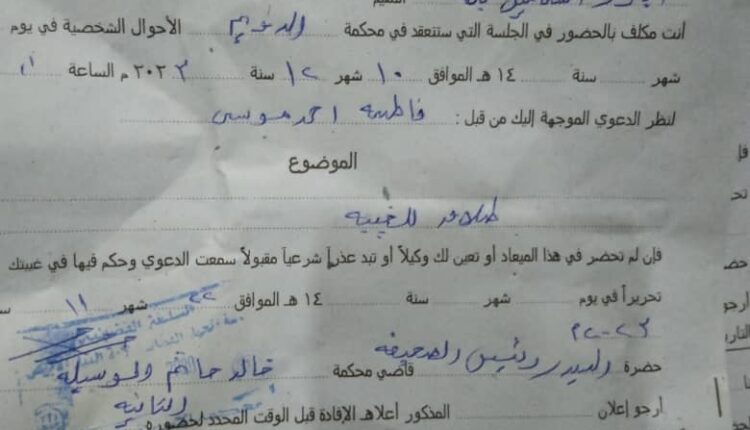 أنت مكلف بالحضور في الجلسة التي ستنعقد في محكمة الدويم الأحوال الشخصية في يوم
شهر سنة ١٤ هـ الموافق ١٠ شهر ١٢ سنة ٢٠٢٣ م الساعة
لنظر الدعوي الموجهة إليك من قبل : فاطمه احمد موسى
الموضوع
طلاق للغيبه
فإن لم تحضر في هذا الميعاد أو تعين لك وكيلاً أو تبد عذراً شرعياً مقبولاً سمعت الدعوي وحكم فيها في غيبتك
تحريراً في يوم شهر سنة ١٤ هـ الموافق ٢٢ شهر ١١
٢٠٢٣
حضرة السيد رئيس الصحيفه قاضي محكمة خالد حاتم الوسيله
أرجو إعلان المذكور أعلاه الإفادة قبل الوقت المحدد لحضوره الثانيه